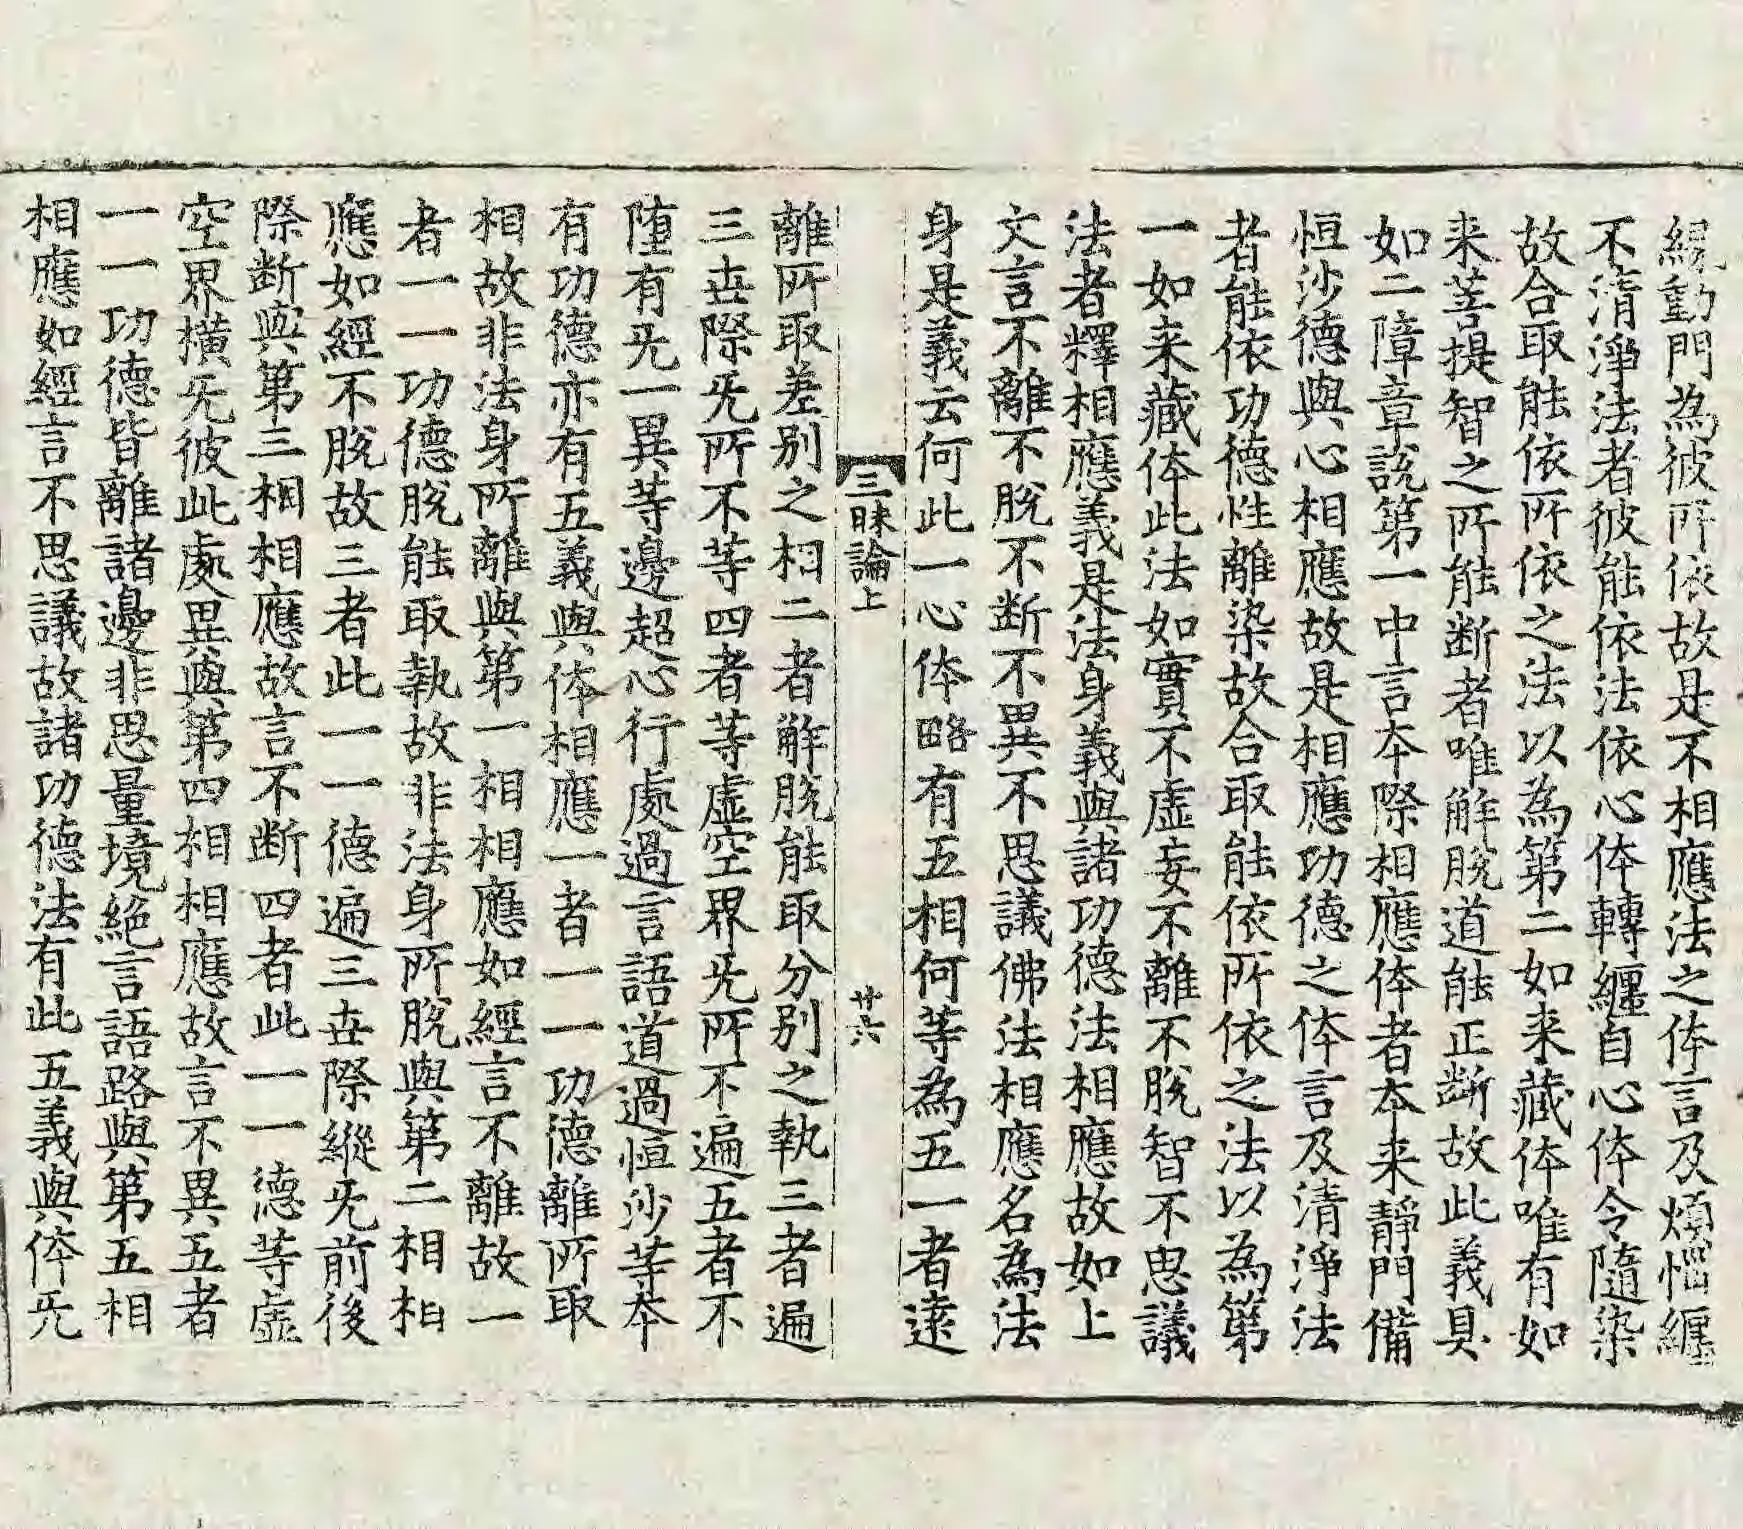 緣動門為彼所依故是不相應法之体言及煩惱纏
不清淨法者彼能依法依心体轉纏自心体令隨染
故合取能依所依之法以為第二如来藏体唯有如
来菩提智之所能断者唯解脫道能正断故此義具
如二障章說第一中言夲際相應体者夲来靜門備
恒沙德與心相應故是相應功德之体言及清淨法
者能依功德性離染故合取能依所依之法以為第
一如来藏体此法如實不虛妄不離不脫智不思議
法者釋相應義是法身義與諸功德法相應故如上
文言不離不脫不断不異不思議佛法相應名為法
身是義云何此一心体略有五相何等為五一者遠
三昧論上 廿六
離所取差别之相二者解脫能取分别之執三者遍
三世際旡所不等四者等虛空界旡所不遍五者不
墮有旡一異等邊超心行處過言語道過恒沙等夲
有功德亦有五義與体相應一者一一功德離所取
相故非法身所離與第一相相應如經言不離故一
者一一功德脫能取執故非法身所脫與第二相相
應如經不脫故三者此一一德遍三世際縱旡前後
際断與第三相相應故言不断四者此一一德等虛
空界橫旡彼此處異與第四相相應故言不異五者
一一功德皆離諸邊非思量境絕言語路與第五相
相應如經言不思議故諸功德法有此五義與体旡